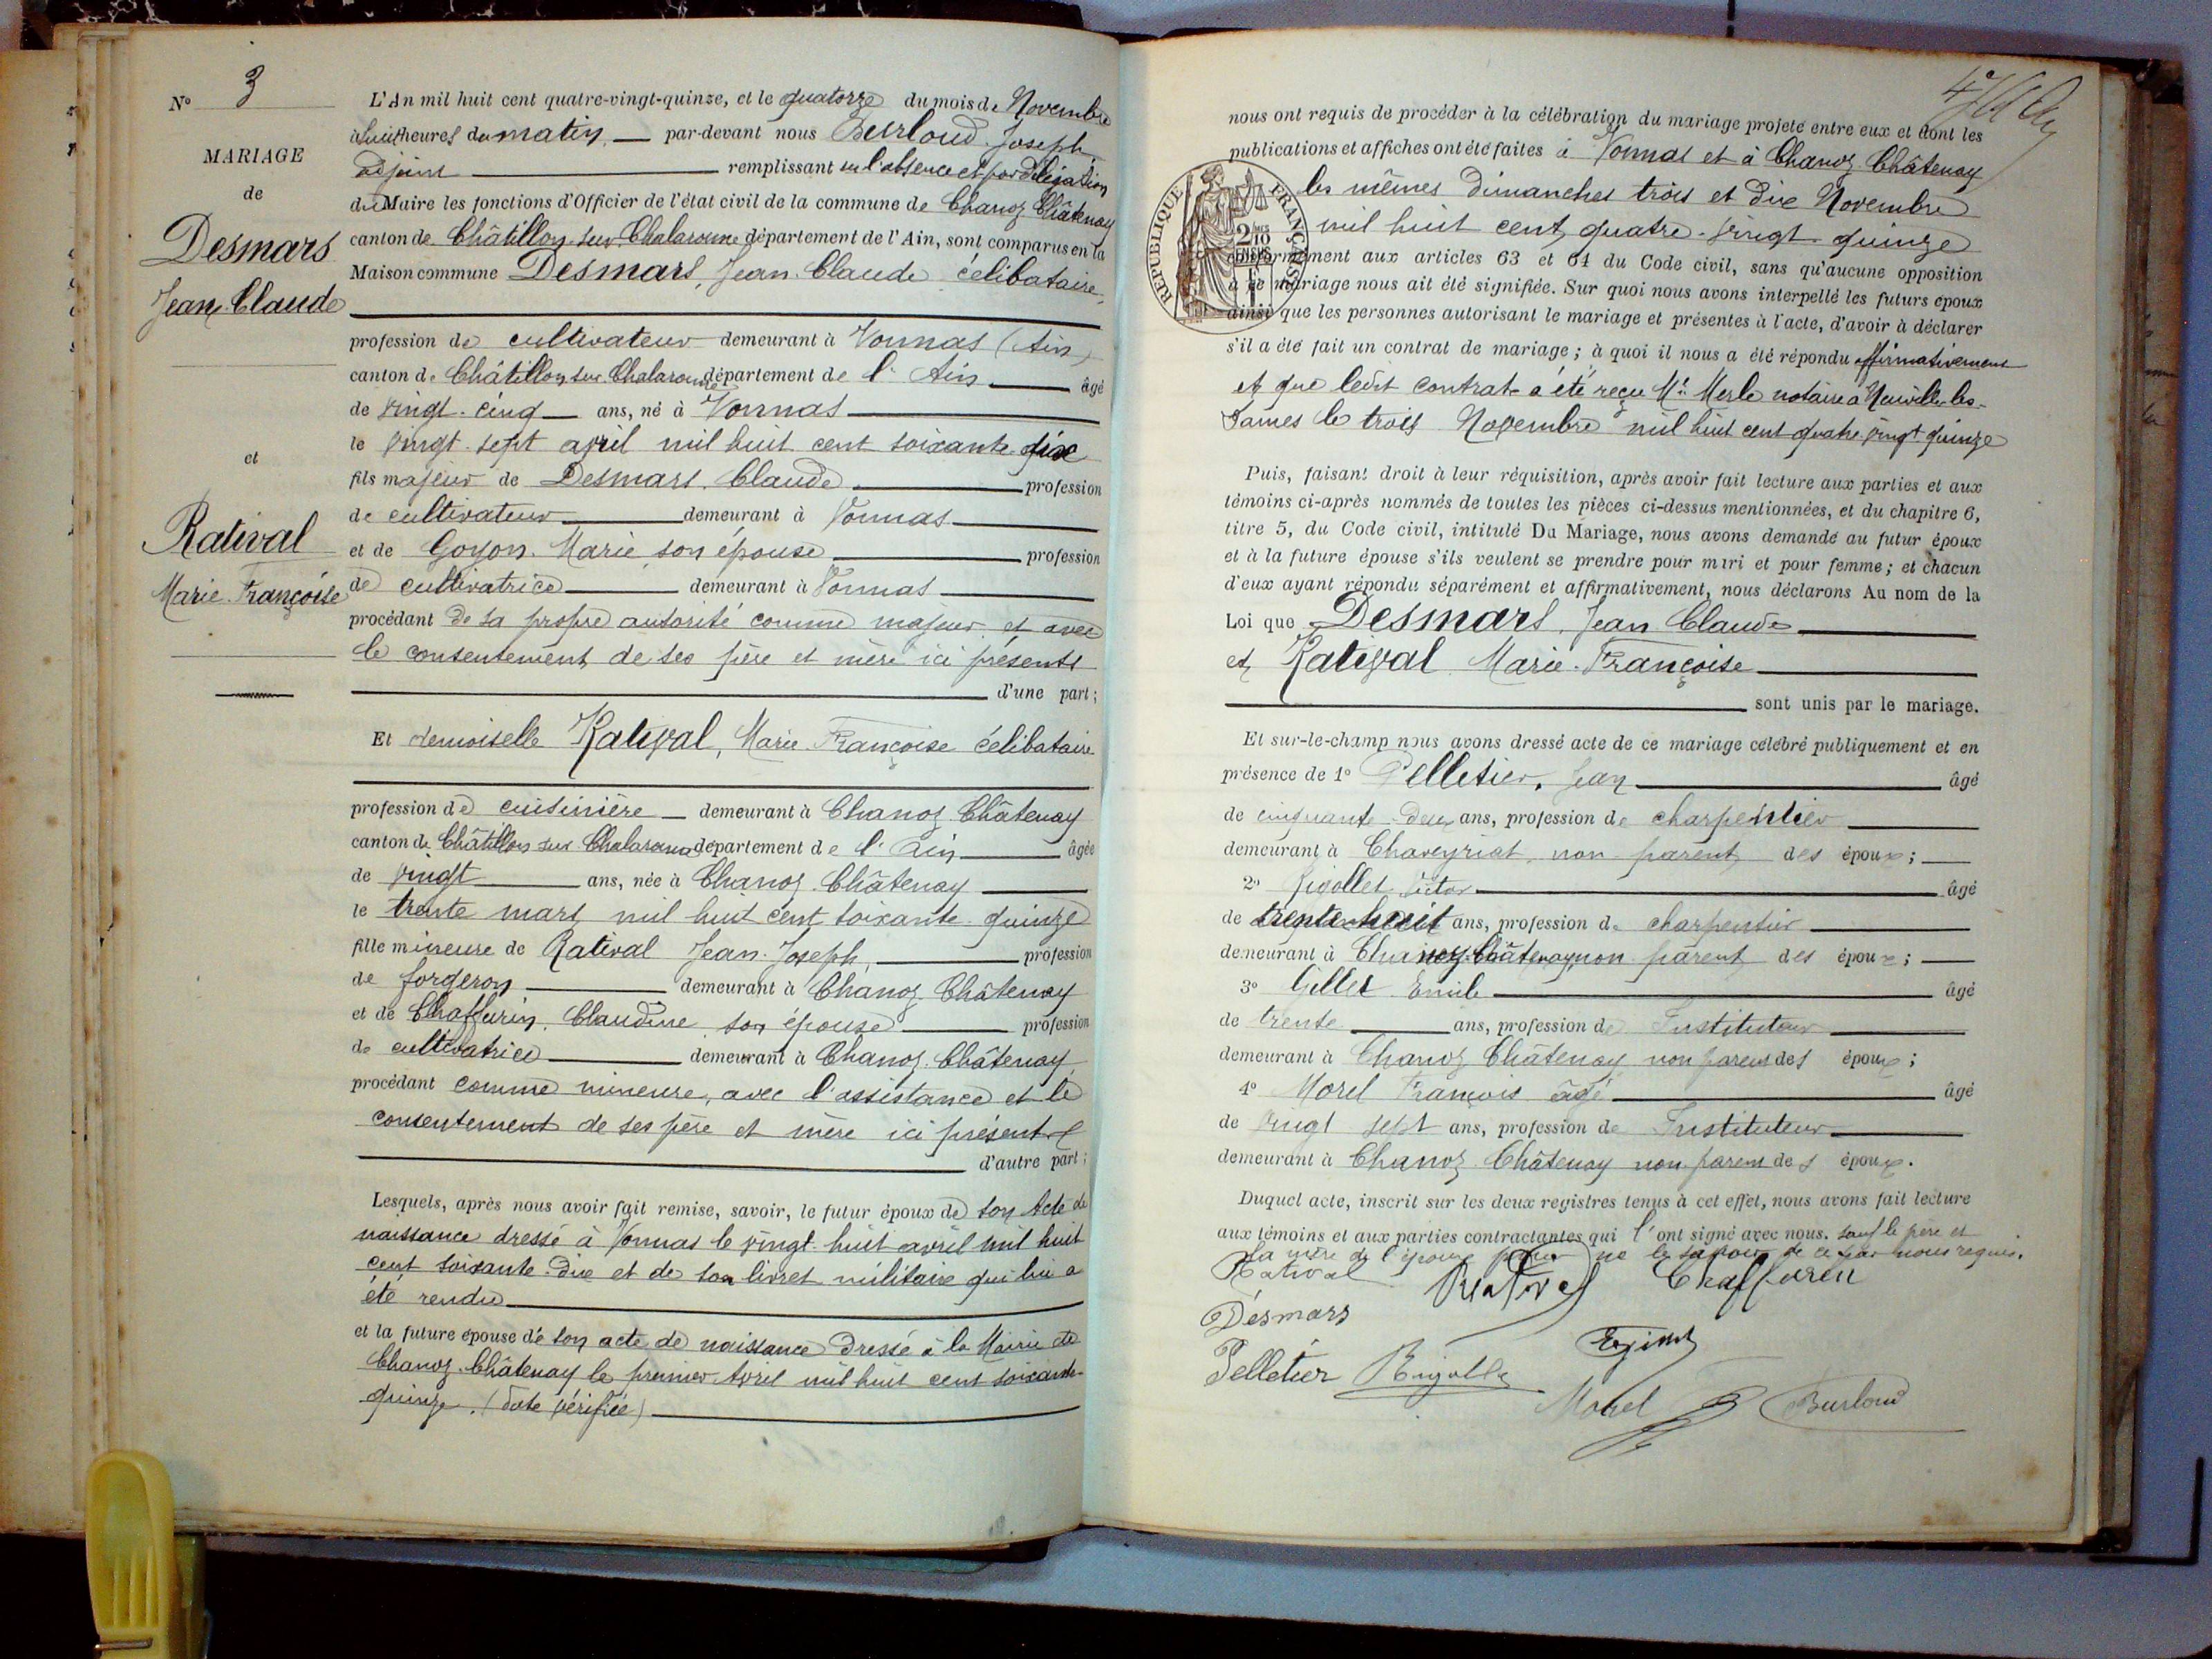 N° 3
MARIAGE
de
Desmars
Jean-Claude
et
Ratival
Marie-Françoise
L'An mil huit cent quatre-vingt-quinze, et le quatorze du mois de Novembre
à huit heures du matin, par-devant nous Burloud Joseph
adjoint remplissant en l'absence et par délégation
du Maire les fonctions d'Officier de l'état civil de la commune de Chanoz-Châtenay
canton de Châtillon-sur-Chalaronne département de l'Ain, sont comparus en la
Maison commune Desmars, Jean-Claude célibataire,
profession de cultivateur demeurant à Vonnas (Ain)
canton de Châtillon-sur-Chalaronne département de l'Ain âgé
de vingt-cinq ans, né à Vonnas
le vingt-sept avril mil huit cent soixante-dix
fils majeur de Desmars, Claude profession
de cultivateur demeurant à Vonnas
et de Goyon Marie, son épouse profession
de cultivatrice demeurant à Vonnas
procédant de sa propre autorité comme majeur et avec
le consentement de ses père et mère ici présents
d'une part;
Et demoiselle Ratival, Marie-Françoise célibataire
profession de cuisinière demeurant à Chanoz-Châtenay
canton de Châtillon-sur-Chalaronne département de l'Ain âgée
de vingt ans, née à Chanoz-Châtenay
le trente mars mil huit cent soixante-quinze
fille mineure de Ratival Jean-Joseph, profession
de forgeron demeurant à Chanoz-Châtenay
et de Chaffurin, Claudine son épouse profession
de cultivatrice demeurant à Chanoz-Châtenay
procédant comme mineure, avec l'assistance et le
consentement de ses père et mère ici présents
d'autre part;
Lesquels, après nous avoir fait remise, savoir, le futur époux de son Acte de
naissance dressé à Vonnas le vingt-huit avril mil huit
cent soixante-dix et de son livret militaire qui lui a
été rendu
et la future épouse de son acte de naissance dressé à la Mairie de
Chanoz-Châtenay le premier Avril mil huit cent soixante-
quinze. (date vérifiée)
nous ont requis de procéder à la célébration du mariage projeté entre eux et dont les
publications et affiches ont été faites à Vonnas et à Chanoz-Châtenay
les mêmes dimanches trois et dix Novembre
mil huit cent quatre-vingt-quinze
RÉPUBLIQUE FRANÇAISE
2/10 EN SUS
conformément aux articles 63 et 64 du Code civil, sans qu'aucune opposition
à ce mariage nous ait été signifiée. Sur quoi nous avons interpellé les futurs époux
ainsi que les personnes autorisant le mariage et présentes à l'acte, d'avoir à déclarer
s'il a été fait un contrat de mariage; à quoi il nous a été répondu affirmativement
et que ledit contrat a été reçu Me Merle notaire à Neuville-les-
Dames le trois Novembre mil huit cent quatre vingt quinze
Puis, faisant droit à leur réquisition, après avoir fait lecture aux parties et aux
témoins ci-après nommés de toutes les pièces ci-dessus mentionnées, et du chapitre 6,
titre 5, du Code civil, intitulé Du Mariage, nous avons demandé au futur époux
et à la future épouse s'ils veulent se prendre pour mari et pour femme; et chacun
d'eux ayant répondu séparément et affirmativement, nous déclarons Au nom de la
Loi que Desmars, Jean-Claude
et Ratival Marie-Françoise
sont unis par le mariage.
Et sur-le-champ nous avons dressé acte de ce mariage célébré publiquement et en
présence de 1° Pelletier, Jean âgé
de cinquante-deux ans, profession de charpentier
demeurant à Chaveyriat, non parent des époux;
2° Rigollet Victor âgé
de trente-huit ans, profession de charpentier
demeurant à Chanoz-Châtenay non parent des époux;
3° Gillet Emile âgé
de trente ans, profession de Instituteur
demeurant à Chanoz Châtenay non parent des époux;
4° Morel François âgé âgé
de vingt sept ans, profession de Instituteur
demeurant à Chanoz-Châtenay non parent des époux.
Duquel acte, inscrit sur les deux registres tenus à cet effet, nous avons fait lecture
aux témoins et aux parties contractantes qui l'ont signé avec nous, sauf le père et
la mère de l'époux pour ne le savoir de ce par nous requis.
Ratival Ratival Chaffurin
Desmars
Pelletier Rigollet E Gillet
Morel Burloud